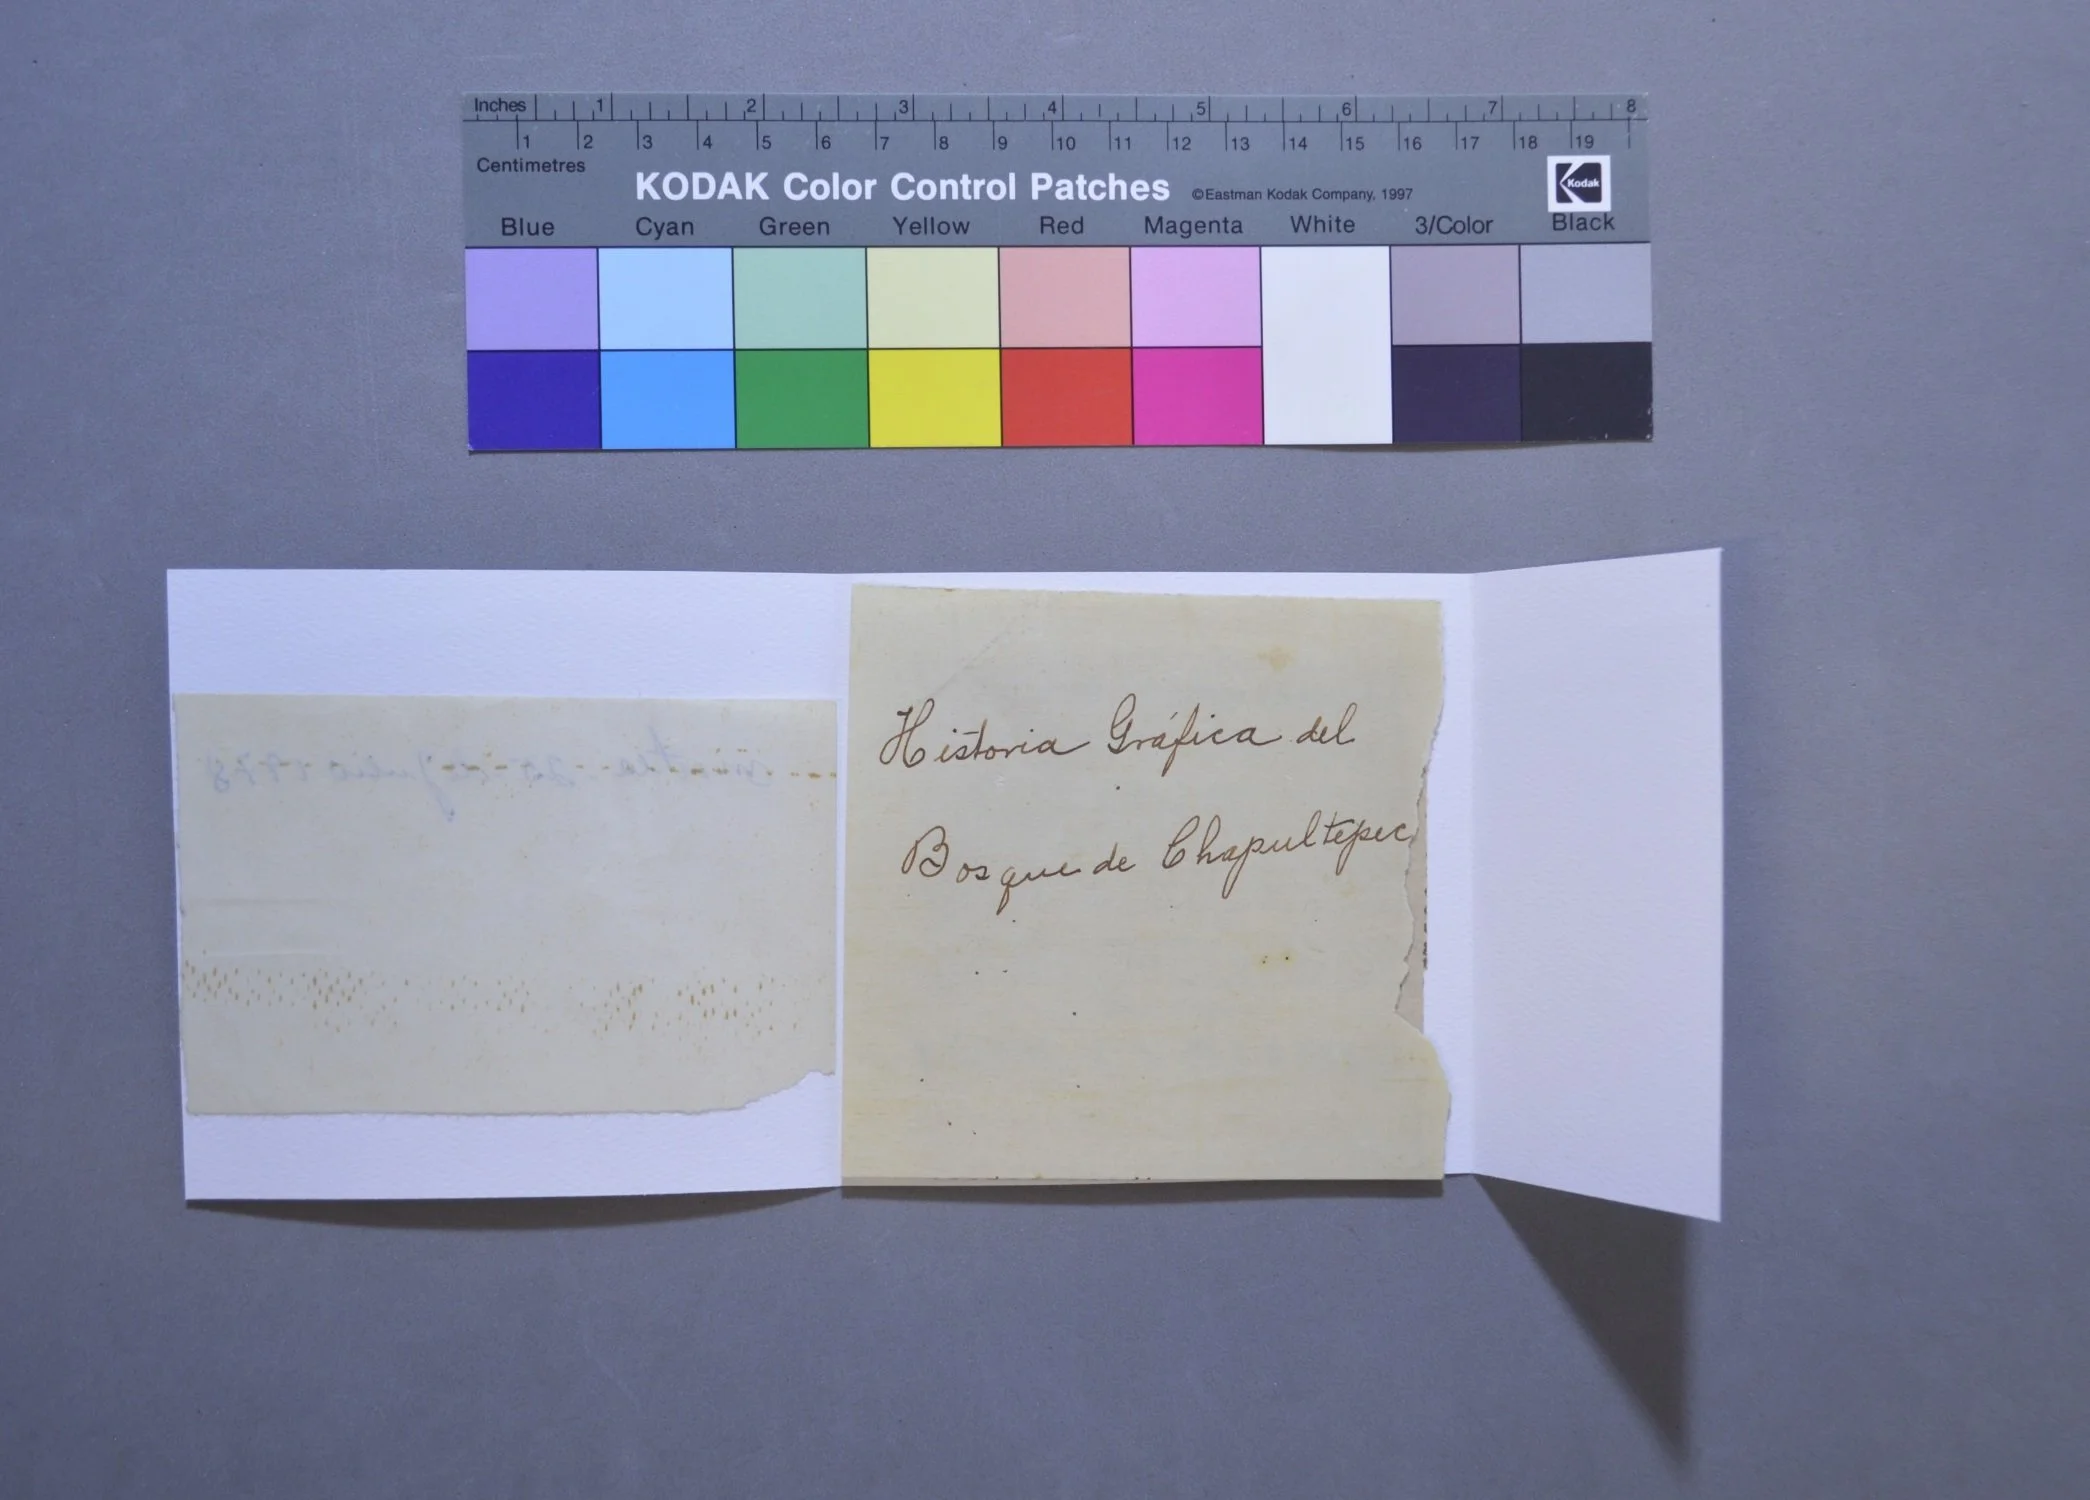 Inches 1 2 3 4 5 6 7 8
1 2 3 4 5 6 7 8 9 10 11 12 13 14 15 16 17 18 19
Centimetres
KODAK Color Control Patches ©Eastman Kodak Company, 1997 Kodak
Blue Cyan Green Yellow Red Magenta White 3/Color Black
20 de julio 1978
Historia Gráfica del
Bosque de Chapultepec